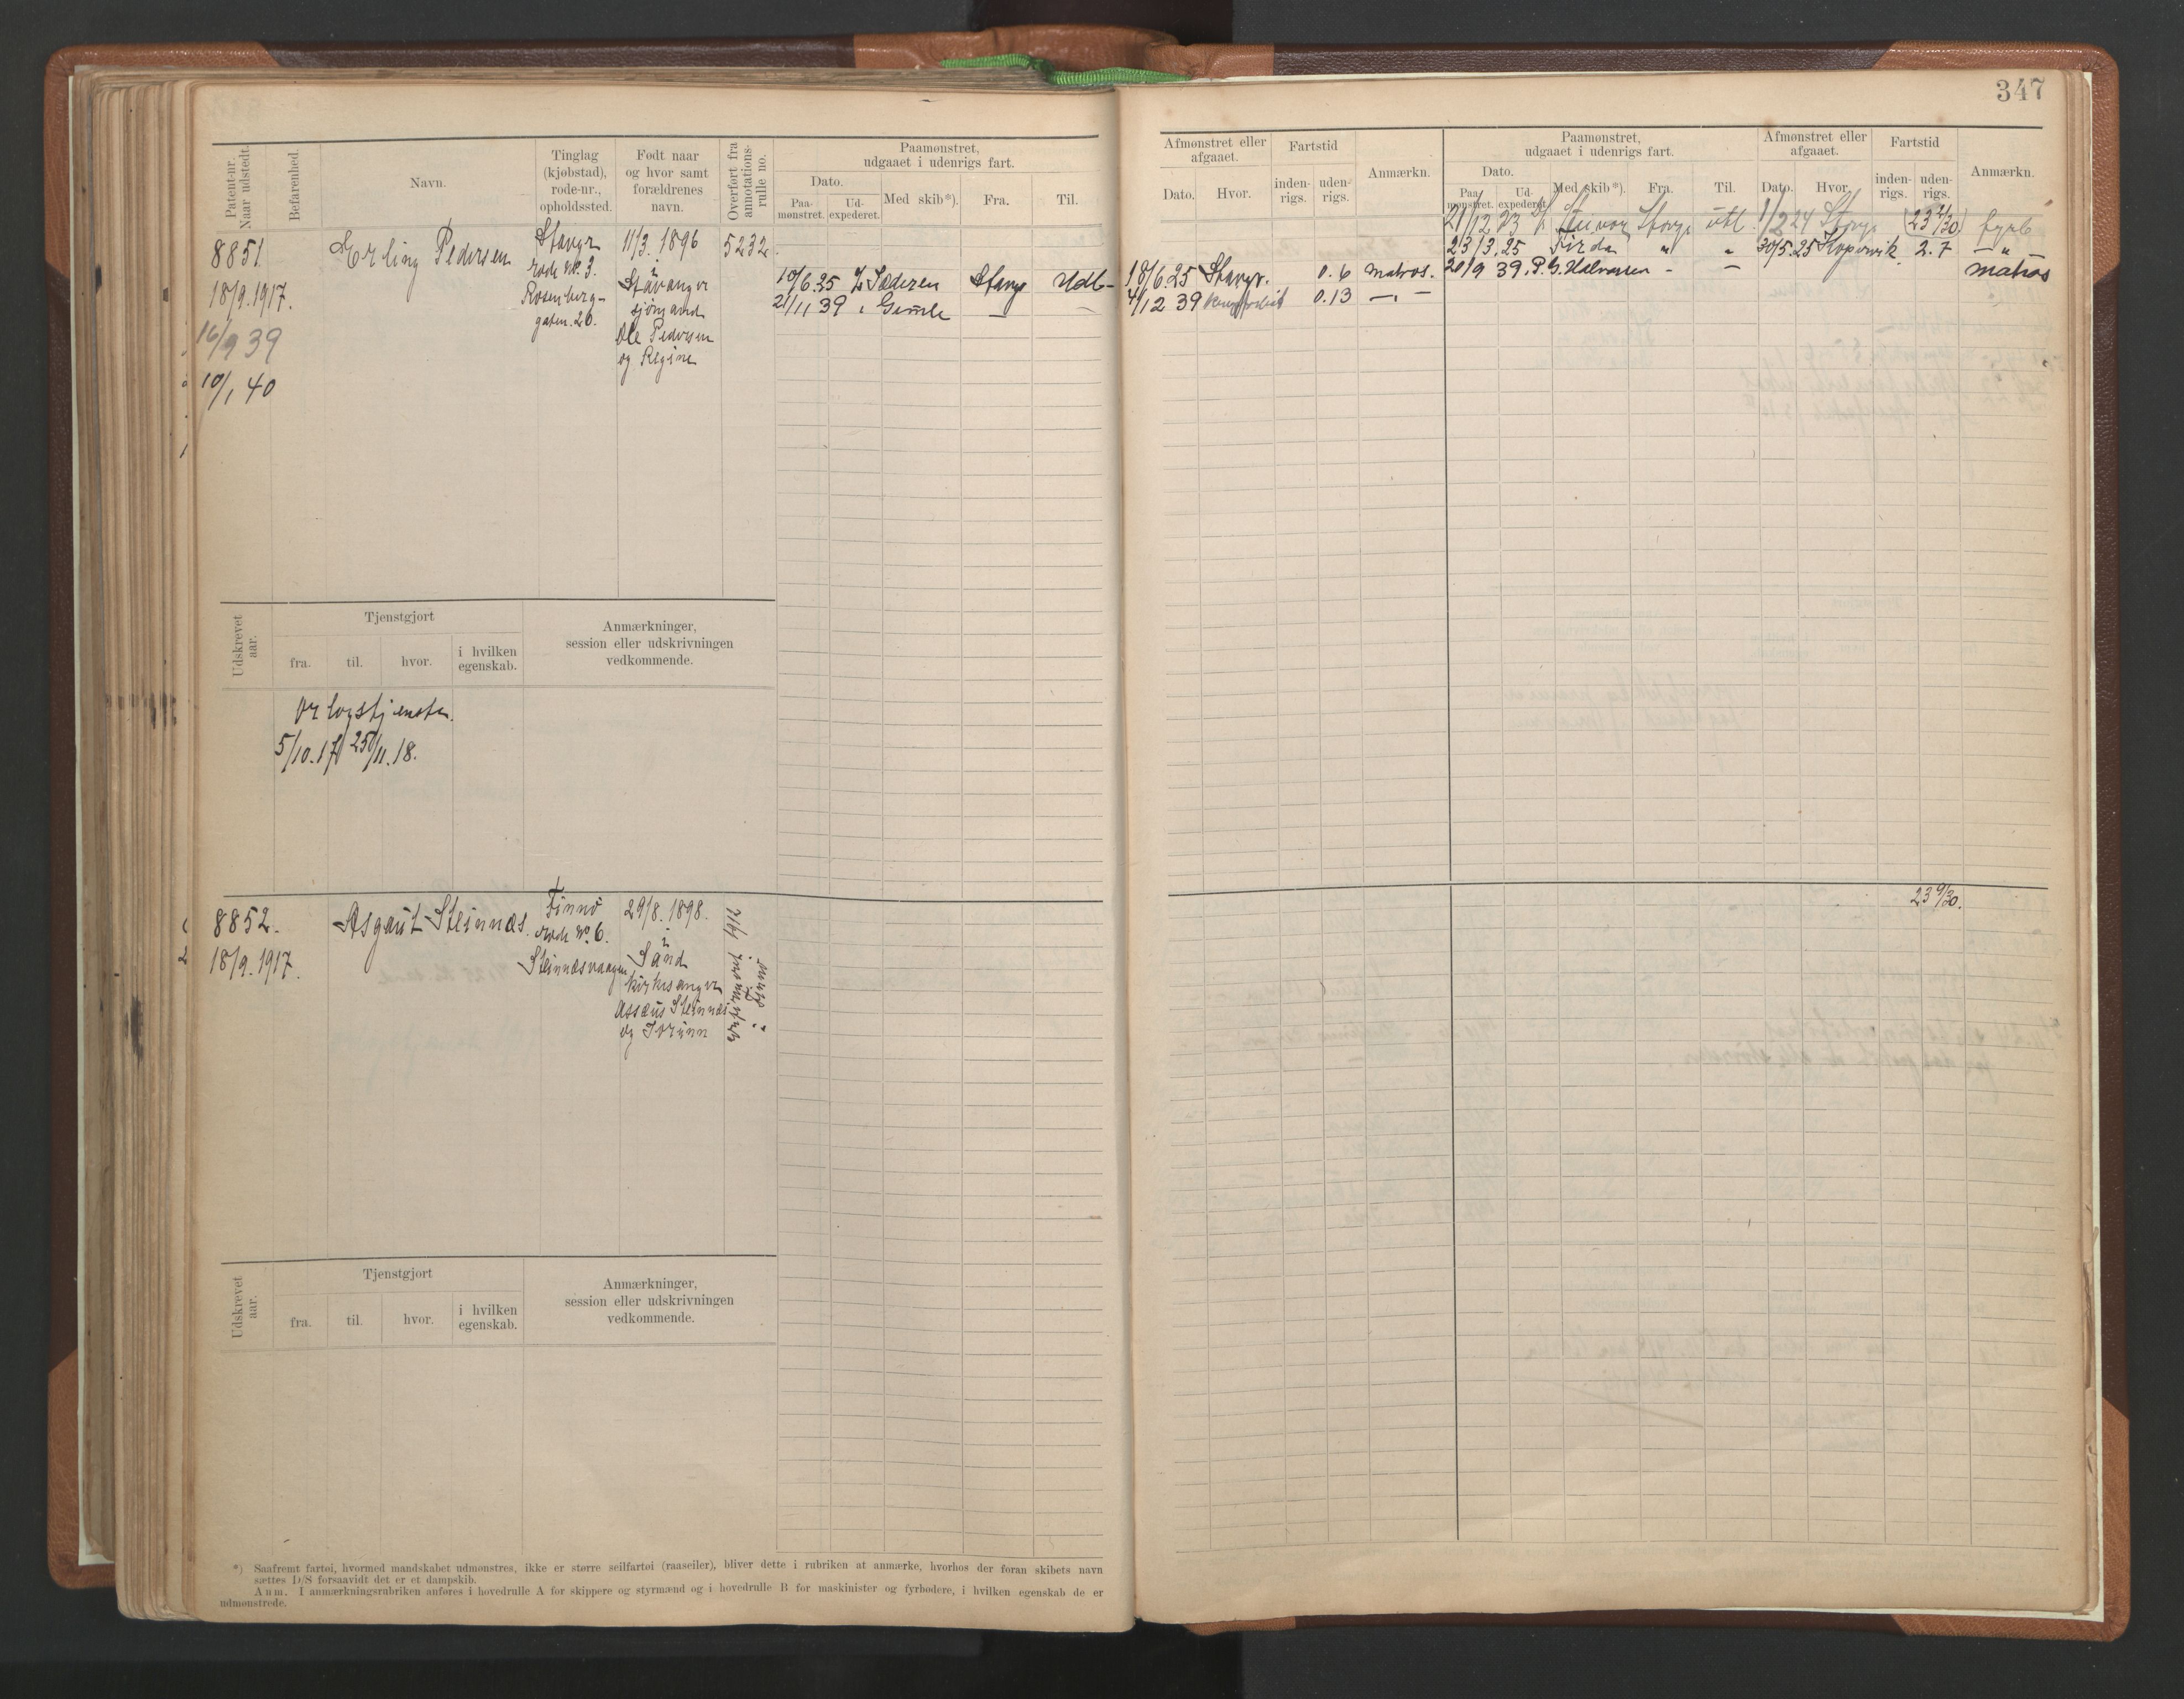 347
Patent-nr. Naar udstedt.
Befarenhed.
Navn.
Tinglag (kjøbstad), rode-nr., opholdssted.
Født naar og hvor samt forældrenes navn.
Overført fra annotationsrulle no.
Paamønstret, udgaaet i udenrigs fart.
Dato.
Paamønstret.
Udexpederet.
Med skib*).
Fra.
Til.
8851
18/9.1917.
16/9 39
10/1 40
Erling Pedersen
Stavgr
rode no. 3.
Rosenberg-
gaten. 20.
11/3. 1896
i
Stavanger
sjømand
Ole Pedersen
og Regine
5232.
10/6.25 Jæderen Stavgr Udl-
21/11 39 Gimle — —
Udskrevet aar.
Tjenstgjort
fra.
til.
hvor.
i hvilken egenskab.
Anmærkninger, session eller udskrivningen vedkommende.
Orlogstjeneste.
5/10.17 25/11.18.
8852.
18/9.1917.
Asgaut Steinnæs.
Finnø
rode no 6.
Steinnæsvaagen
29/8. 1898.
i
Sand
kirkesanger
Assæus Steinnæs
og Jorunn
1912
Udskrevet aar.
Tjenstgjort
fra.
til.
hvor.
i hvilken egenskab.
Anmærkninger, session eller udskrivningen vedkommende.
*) Saafremt fartøi, hvormed mandskabet udmønstres, ikke er større seilfartøi (raaseiler), bliver dette i rubriken at anmærke, hvorhos der foran skibets navn
sættes D/S forsaavidt det er et dampskib.
Anm. I anmærkningsrubriken anføres i hovedrulle A for skippere og styrmænd og i hovedrulle B for maskinister og fyrbødere, i hvilken egenskab de er
udmønstrede.
Afmønstret eller afgaaet.
Dato.
Hvor.
Fartstid
indenrigs.
udenrigs.
Anmærkn.
Paamønstret, udgaaet i udenrigs fart.
Dato.
Paamønstret.
Udexpederet.
Med skib*).
Fra.
Til.
Afmønstret eller afgaaet.
Dato.
Hvor.
Fartstid
indenrigs.
udenrigs.
Anmærkn.
21/12 23 Stavgr utl. 1/2 24 Stavgr fyrb
23/3.25 Firda " " 30/5.25 Kopervik 2.7 — " —
18/6.25 Stavgr. 0.6 matros. 20/9 39 P.G. Halvorsen - — matros
4/12 39 0.13 — " —
23 9/30.